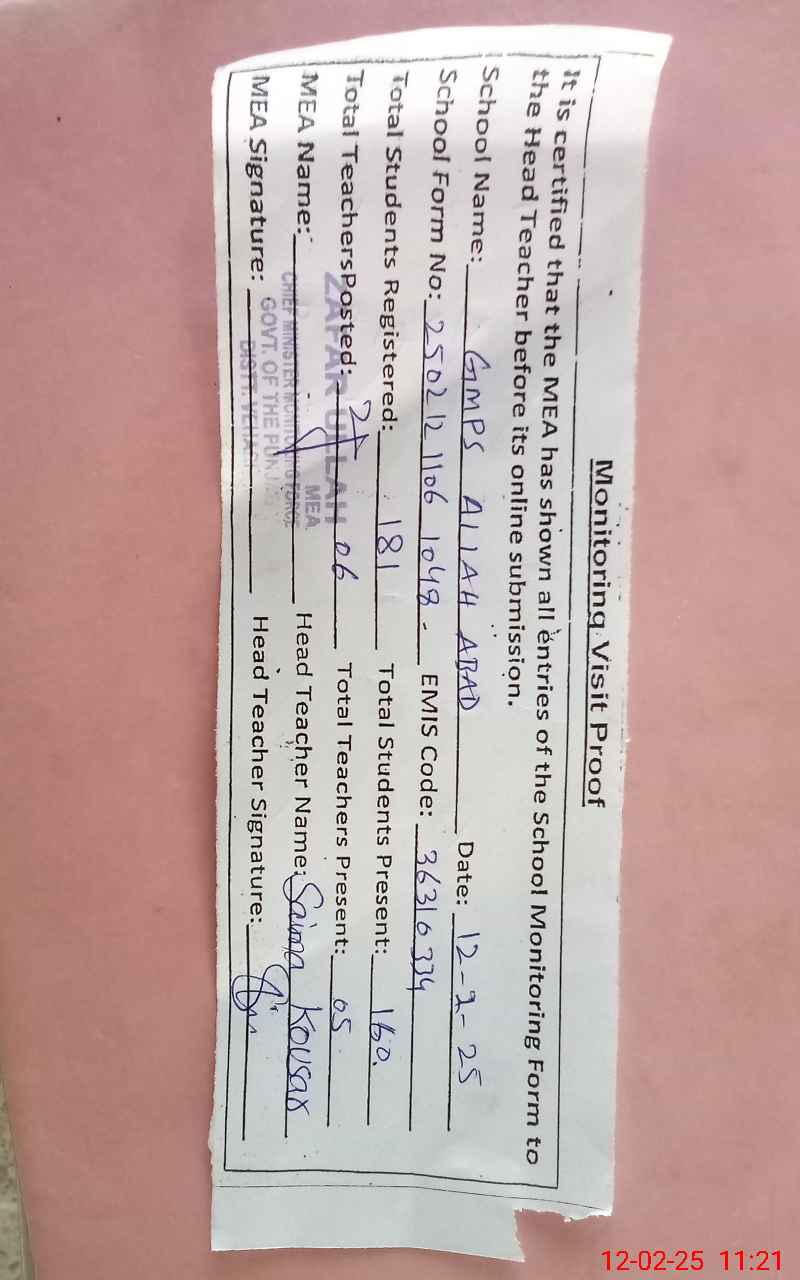 Monitoring Visit Proof
It is certified that the MEA has shown all entries of the School Monitoring Form to
the Head Teacher before its online submission.
School Name: GMPS AllAH ABAD Date: 12-2-25
School Form No: 2502121106 1048 - EMIS Code: 36310334
Total Students Registered: 181 Total Students Present: 160.
Total TeachersPosted: 06 Total Teachers Present: 05
ZAFAR ULLAH
MEA Name: Head Teacher Name: Saima Kousar
MEA
CHIEF MINISTER MONITORING FORCE
GOVT. OF THE PUNJAB
MEA Signature: Head Teacher Signature:
DISTT. VEHARI
12-02-25 11:21